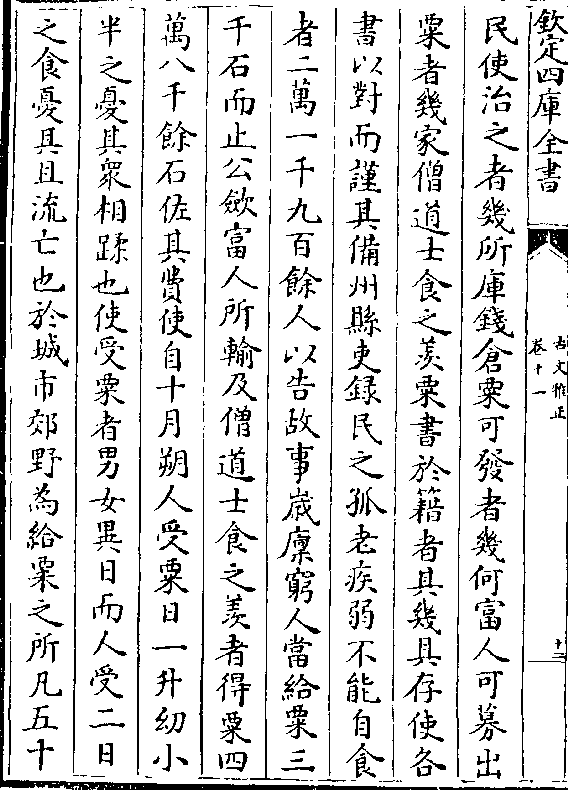 欽定四庫全書
古文雅正
卷十一
十三
民使治之者幾所庫錢倉粟可發者幾何富人可募出
粟者幾家僧道士食之羨粟書於籍者其幾具存使各
書以對而謹其備州縣吏録民之孤老疾弱不能自食
者二萬一千九百餘人以告故事歳廩窮人當給粟三
千石而止公歛富人所輸及僧道士食之羨者得粟四
萬八千餘石佐其費使自十月朔人受粟日一升幼小
半之憂其衆相蹂也使受粟者男女異日而人受二日
之食憂其且流亡也於城市郊野為給粟之所凡五十